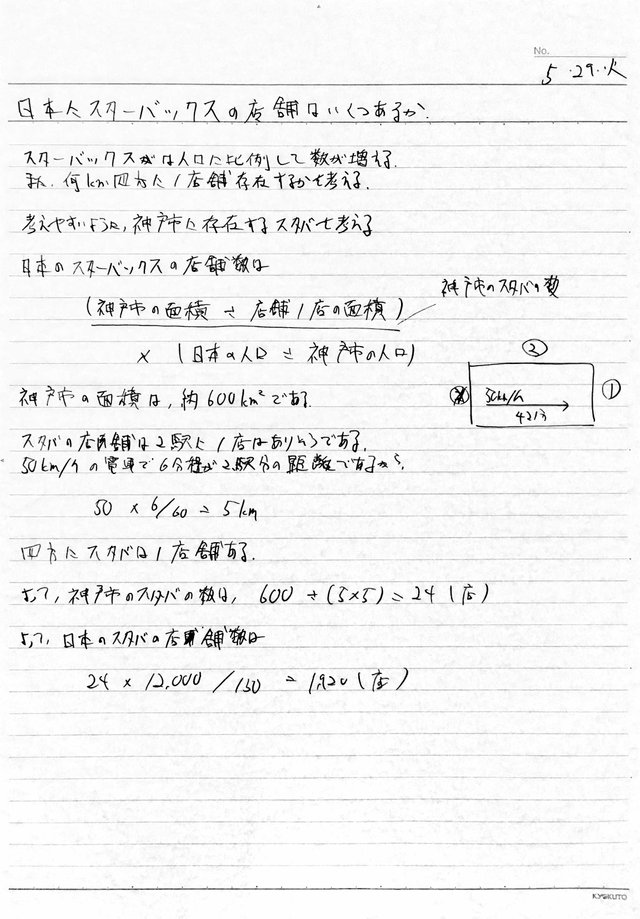 No.
5.29.火
日本にスターバックスの店舗はいくつあるか.
スターバックスは人口に比例して数が増える.
また, 何km四方に1店舗存在するかを考える.
考えやすいように, 神戸市に存在するスタバを考える
日本のスターバックスの店舗数は
神戸市のスタバの数
(神戸市の面積 ÷ 店舗1店の面積)
× (日本の人口 ÷ 神戸市の人口)
②
50km/h
①
神戸市の面積は, 約600km²である.
スタバの店舗は2駅に1店はありそうである.
50km/hの電車で6分程が2駅分の距離であるから,
50 × 6/60 = 5km
四方にスタバは1店舗ある.
よって, 神戸市のスタバの数は, 600 ÷ (5×5) = 24 (店)
よって, 日本のスタバの店舗数は
24 × 12,000 / 150 = 1,920 (店)
KYOKUTO